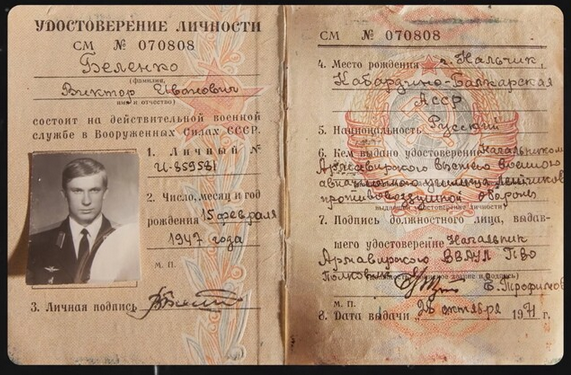 УДОСТОВЕРЕНИЕ ЛИЧНОСТИ
СМ № 070808
Беленко
(фамилия,
Виктор Иванович
имя и отчество)
состоит на действительной военной
службе в Вооруженных Силах СССР.
1. Личный №
И-859581
2. Число, месяц и год
рождения 15 февраля
1947 года
М. П.
3. Личная подпись
СМ № 070808
4. Место рождения г. Нальчик,
Кабардино-Балкарская
АССР
5. Национальность Русский
6. Кем выдано удостоверение Начальником
Армавирского высшего военного
авиационного училища летчиков
противовоздушной обороны
7. Подпись должностного лица, выдав-
шего удостоверение Начальник
Армавирского ВВАУЛ ПВО
Полковник Е. Трофимов
М. П.
8. Дата выдачи „28 октября 1971 г.